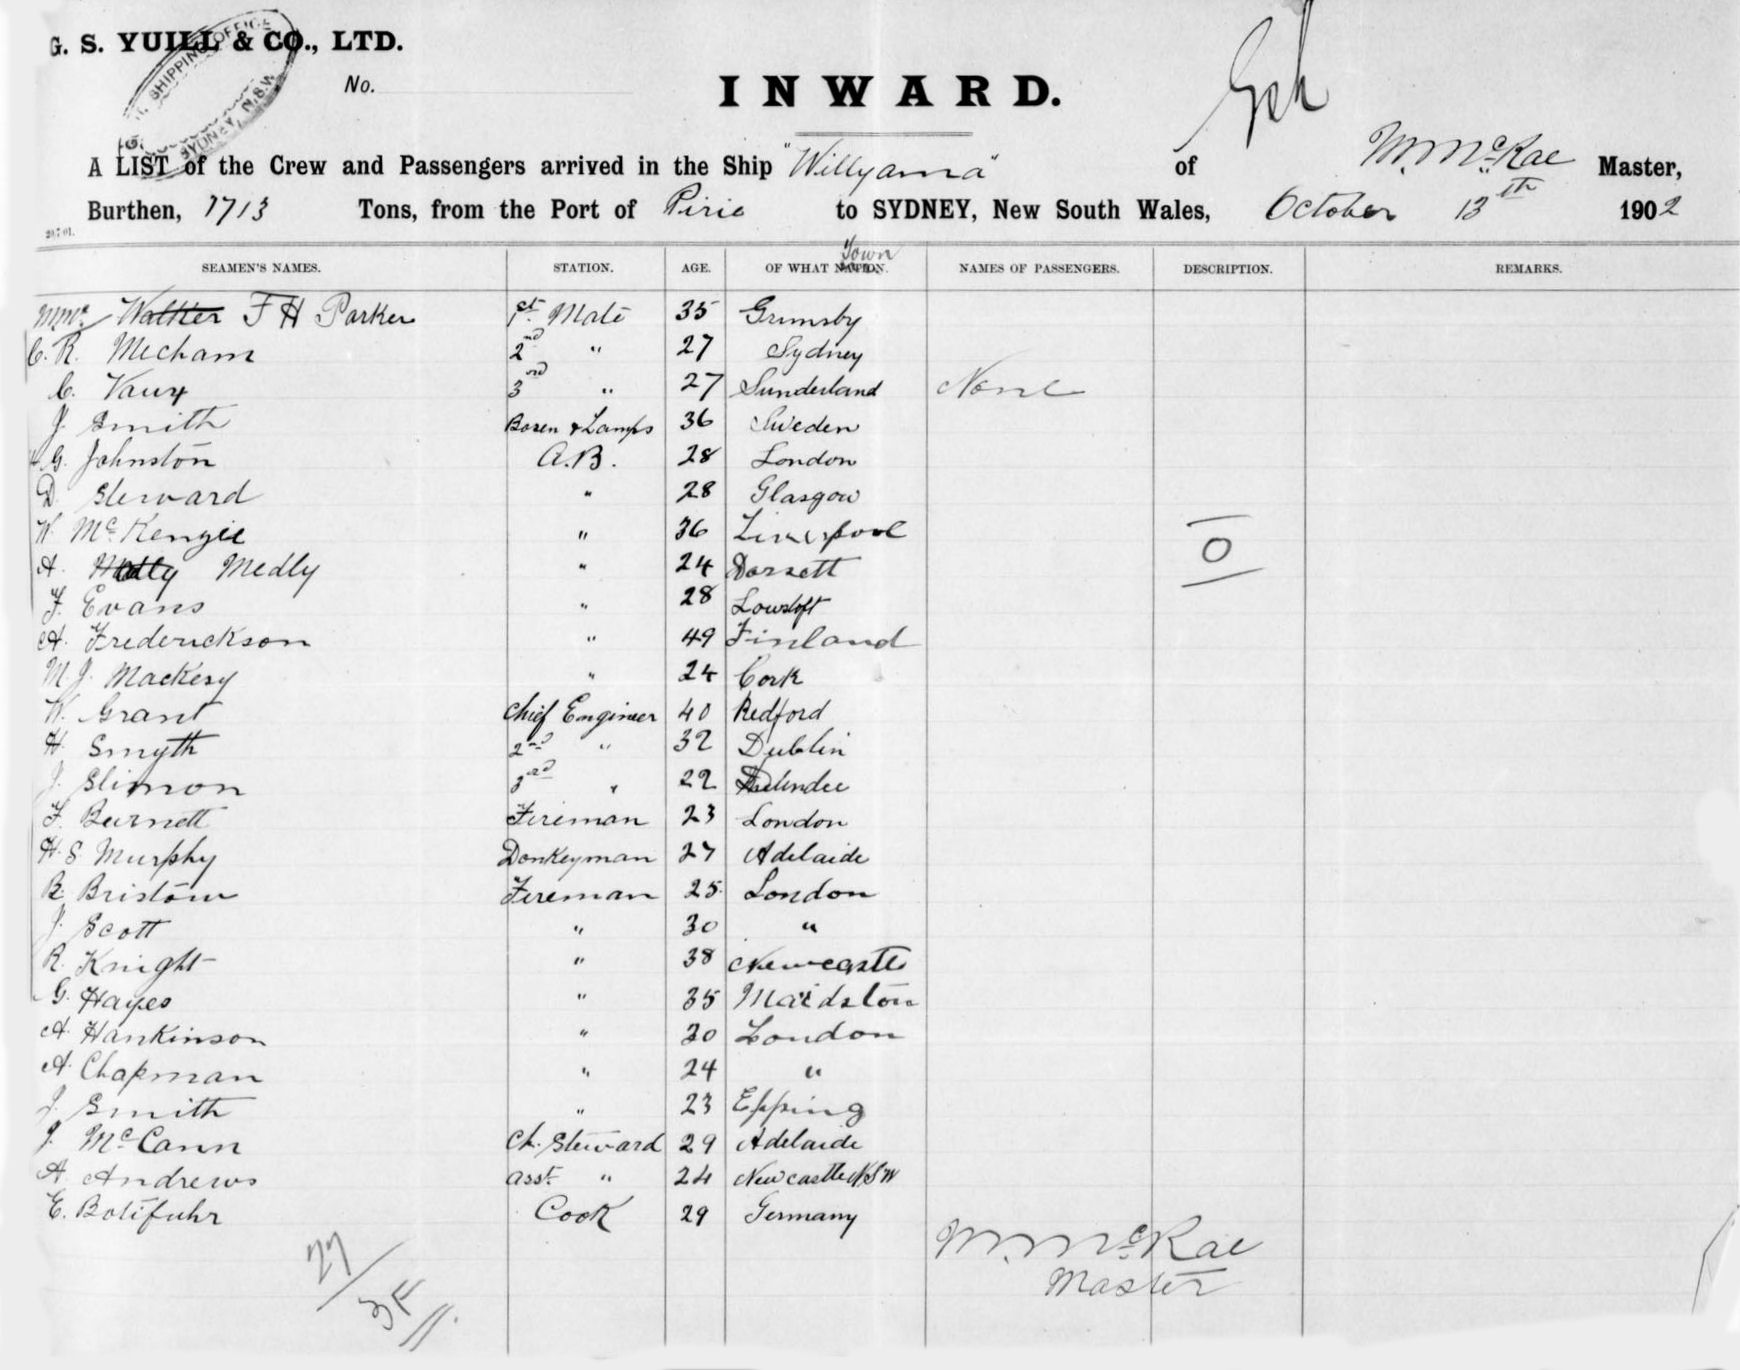 G. S. YUILL & CO., LTD.
SHIPPING OFFICE
SYDNEY, N.S.W.
No.
INWARD.
A LIST of the Crew and Passengers arrived in the Ship "Willyama" of M. McRae Master,
Burthen, 1713 Tons, from the Port of Pirie to SYDNEY, New South Wales, October 13th 1902
20.7 01.
Town
SEAMEN'S NAMES. STATION. AGE. OF WHAT NATION. NAMES OF PASSENGERS. DESCRIPTION. REMARKS.
Walker F H Parker 1st Mate 35 Grimsby
C. R. Mecham 2nd " 27 Sydney
C. Vaux 3rd " 27 Sunderland None
J. Smith Bosen & Lamps 36 Sweden
G. Johnston A.B. 28 London
D. Steward " 28 Glasgow
W. McKenzie " 36 Liverpool
A. Medly " 24 Dorsett O
F. Evans " 28 Lowstoft
A. Frederickson " 49 Finland
M. J. Mackesy " 24 Cork
W. Grant Chief Engineer 40 Redford
H. Smyth 2nd " 32 Dublin
J. Slimon 3rd " 22 Dundee
F. Burnett Fireman 23 London
H. S. Murphy Donkeyman 27 Adelaide
B. Bristow Fireman 25 London
J. Scott " 30 "
R. Knight " 38 Newcastle
G. Hayes " 35 Maidston
A. Hankinson " 30 London
A. Chapman " 24 "
J. Smith " 23 Epping
J. McCann Ch. Steward 29 Adelaide
A. Andrews asst. " 24 Newcastle NSW
E. Botefuhr Cook 29 Germany
M. McRae
Master
27